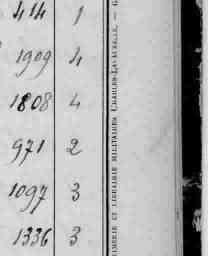 414 1
1909 4
1808 4
971 2
1097 3
1336 3
IMERIE ET LIBRAIRIE MILITAIRES CHARLES-LAVAUZELLE, —